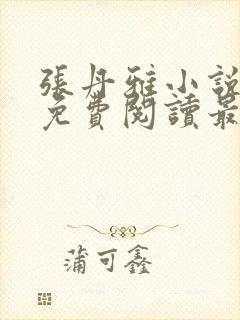 張丹雅小說
免費閱讀最
蒲可鑫